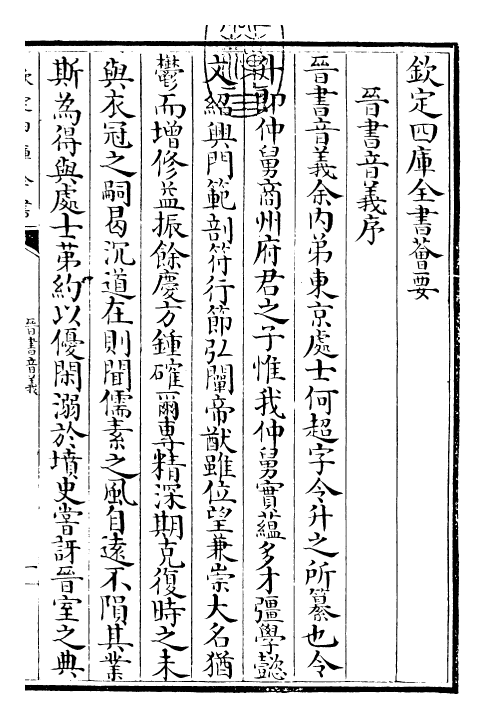 欽定四庫全書薈要
晉書音義序
晉書音義余內弟東京處士何超字令升之所纂也令
升即仲舅商州府君之子惟我仲舅實蘊多才彊學懿
文紹興門範剖符行節弘闡帝猷雖位望兼崇大名猶
鬱而增修益振餘慶方鍾確爾專精深期克復時之未
與衣冠之嗣曷沉道在則聞儒素之風自遠不隕其業
斯為得與處士苐約以優閑溺於墳史嘗訝晉室之典
欽定四庫全書
晉書音義
一